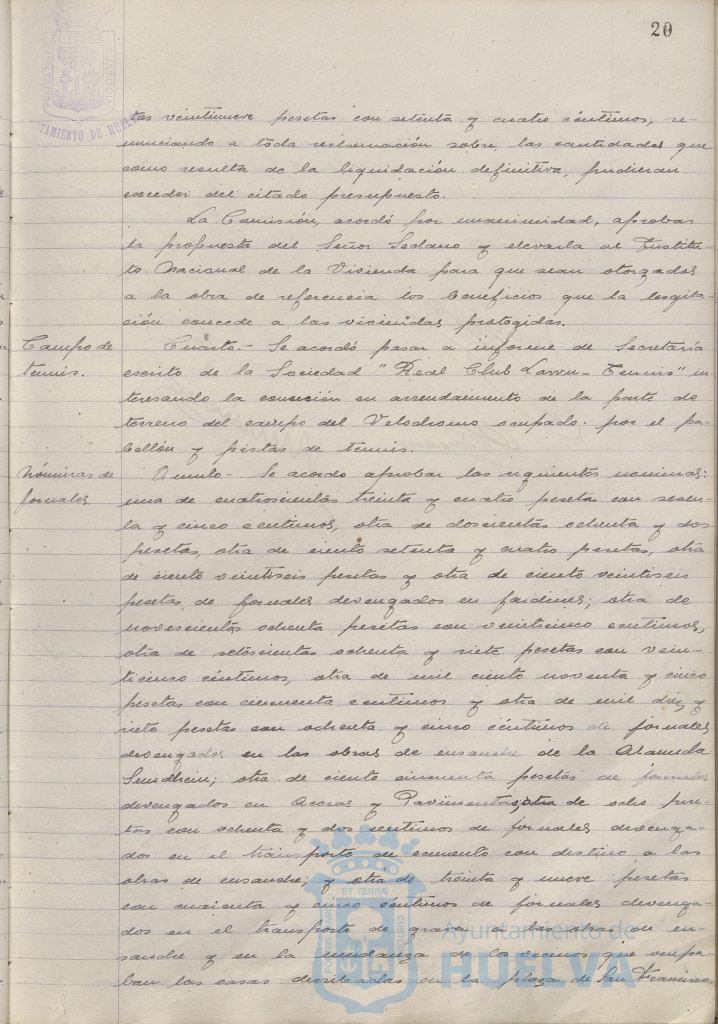 20
PORTUS MARIS ET TERRAE CUSTODIA
TAMIENTO DE HUELVA
tas veintinueve pesetas con setenta y cuatro céntimos, re-
nunciando a toda reclamación sobre las cantidades que
como resulta de la liquidación definitiva, pudieran
exceder del citado presupuesto.
La Comisión, acordó por unanimidad, aprobar
la propuesta del Señor Sedano y elevarla al Institu-
to Nacional de la Vivienda para que sean otorgados
a la obra de referencia los beneficios que la legisla-
ción concede a las viviendas protegidas.
Campo de
tennis.
Cuarto.- Se acordó pasar a informe de Secretaría
escrito de la Sociedad "Real Club Lawn-Tennis" in
teresando la concesión en arrendamiento de la parte de
terreno del campo del Velódromo ocupado por el pa-
bellón y pistas de tennis.
Nóminas de
jornales.
Quinto- Se acordo aprobar las siguientes nominas:
una de cuatrocientas treinta y cuatro pesetas con sesen-
ta y cinco centimos, otra de doscientas ochenta y dos
pesetas, otra de ciento setenta y cuatro pesetas, otra
de ciento veintiseis pesetas y otra de ciento veintiseis
pesetas de jornales devengados en jardines; otra de
novecientos ochenta pesetas con veinticinco centimos,
otra de setecientas ochenta y siete pesetas con vein-
ticinco céntimos, otra de mil ciento noventa y cinco
pesetas con cincuenta centimos y otra de mil diez y
siete pesetas con ochenta y cinco céntimos de jornales
devengados en las obras de ensanche de la Alameda
Sundheim; otra de ciento cincuenta pesetas de jornales
devengados en Aceras y Pavimentos; otra de ocho pese-
tas con ochenta y dos centimos de jornales devenga-
dos en el transporte de cemento con destino a las
obras de ensanche; y otra de treinta y nueve pesetas
con cincuenta y cinco centimos de jornales devenga-
dos en el transporte de grava a las obras de en-
sanche y en la mudanza de los vecinos que ocupa-
ban las casas derribadas en la plaza de San Francisco,
PORTUS MARIS ET TERRAE CUSTODIA
Ayuntamiento de
HUELVA